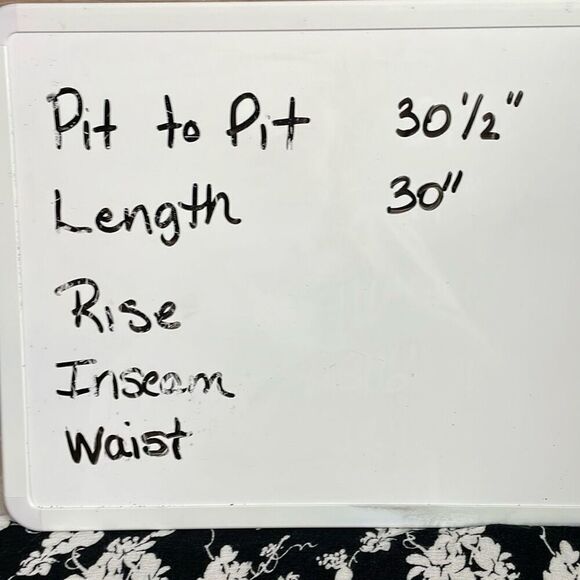 Pit to Pit 30 1/2"
Length 30"
Rise
Inseam
Waist